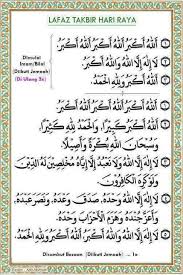 LAFAZ TAKBIR HARI RAYA
اَللهُ أَكْبَرُ اَللهُ أَكْبَرُ اَللهُ أَكْبَرُ
Dimulai
Imam/Bilal
(Diikuti Jemaah)
(Di Ulang 3x)
لَا إِلَهَ إِلَّا اللهُ وَاللهُ أَكْبَرُ
اَللهُ أَكْبَرُ وَلِلَّهِ الْحَمْدُ
اَللهُ أَكْبَرُ كَبِيْرًا، وَالْحَمْدُ لِلَّهِ كَثِيْرًا
وَسُبْحَانَ اللهِ بُكْرَةً وَأَصِيْلًا،
لَا إِلَهَ إِلَّا اللهُ وَلَا نَعْبُدُ إِلَّا إِيَّاهُ مُخْلِصِيْنَ لَهُ الدِّيْنَ
وَلَوْكَرِهَ الْكَافِرُوْنَ
لَا إِلَهَ إِلَّا اللهُ وَحْدَهُ، صَدَقَ وَعْدَهُ، وَنَصَرَعَبْدَهُ،
وَأَعَزَّجُنْدَهُ وَهَزَمَ الْأَحْزَابَ وَحْدَهُ،
لَا إِلَهَ إِلَّا اللهُ وَاللهُ أَكْبَرُ اَللهُ أَكْبَرُ وَلِلَّهِ الْحَمْدُ
Disambut Bacaan (Diikuti Jemaah) ... 1x